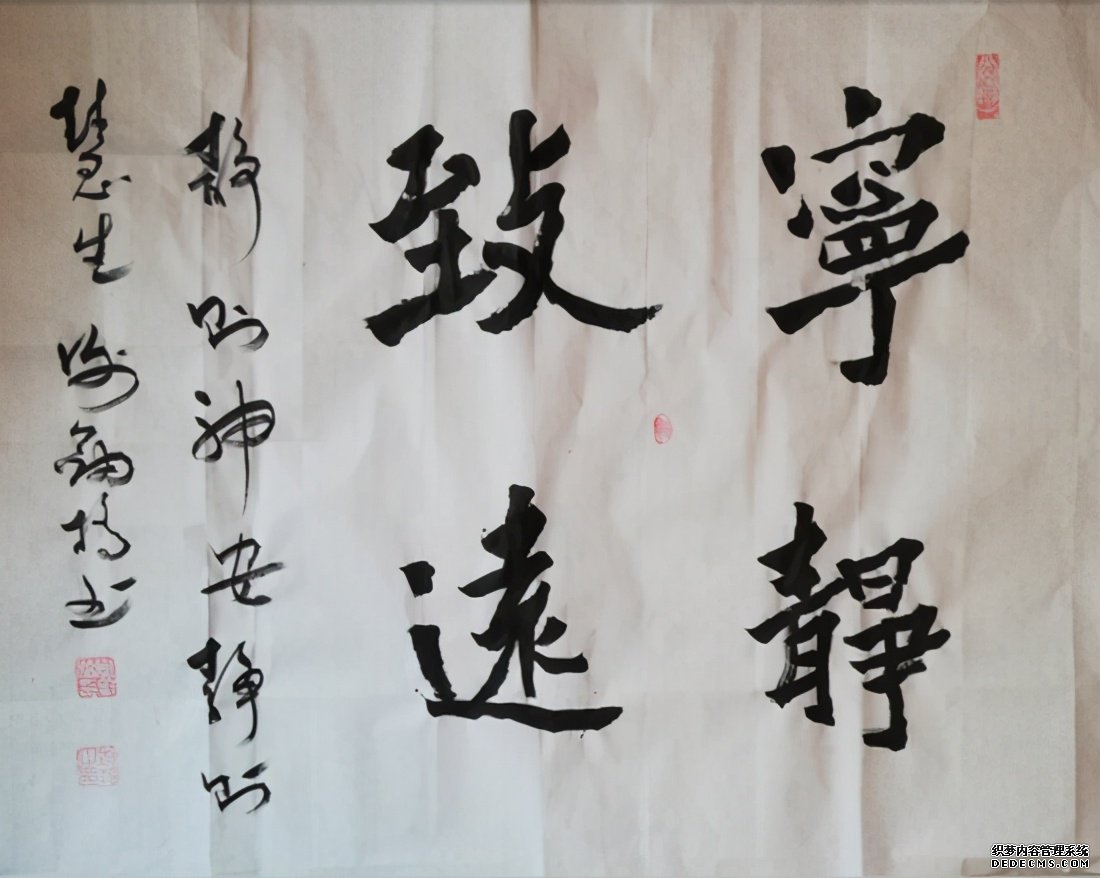 寧靜
致遠
静则神安静则
慧生
书
织梦内容管理系统
DEDECMS.COM